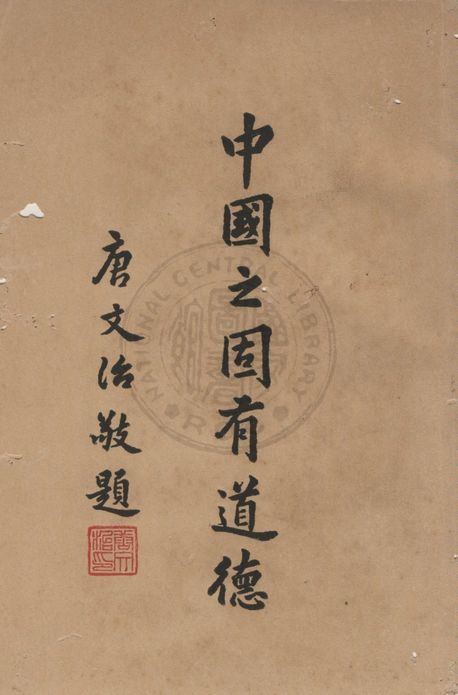 中國之固有道德
唐文治敬題
唐文治印
NATIONAL CENTRAL LIBRARY